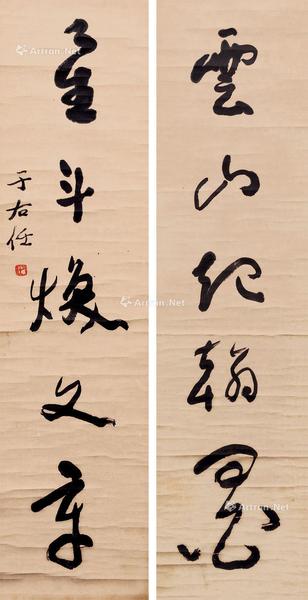 雲山起翰墨
星斗煥文章
于右任
Artron.Net
Artron.Net
Artron.Net
Artron.Net